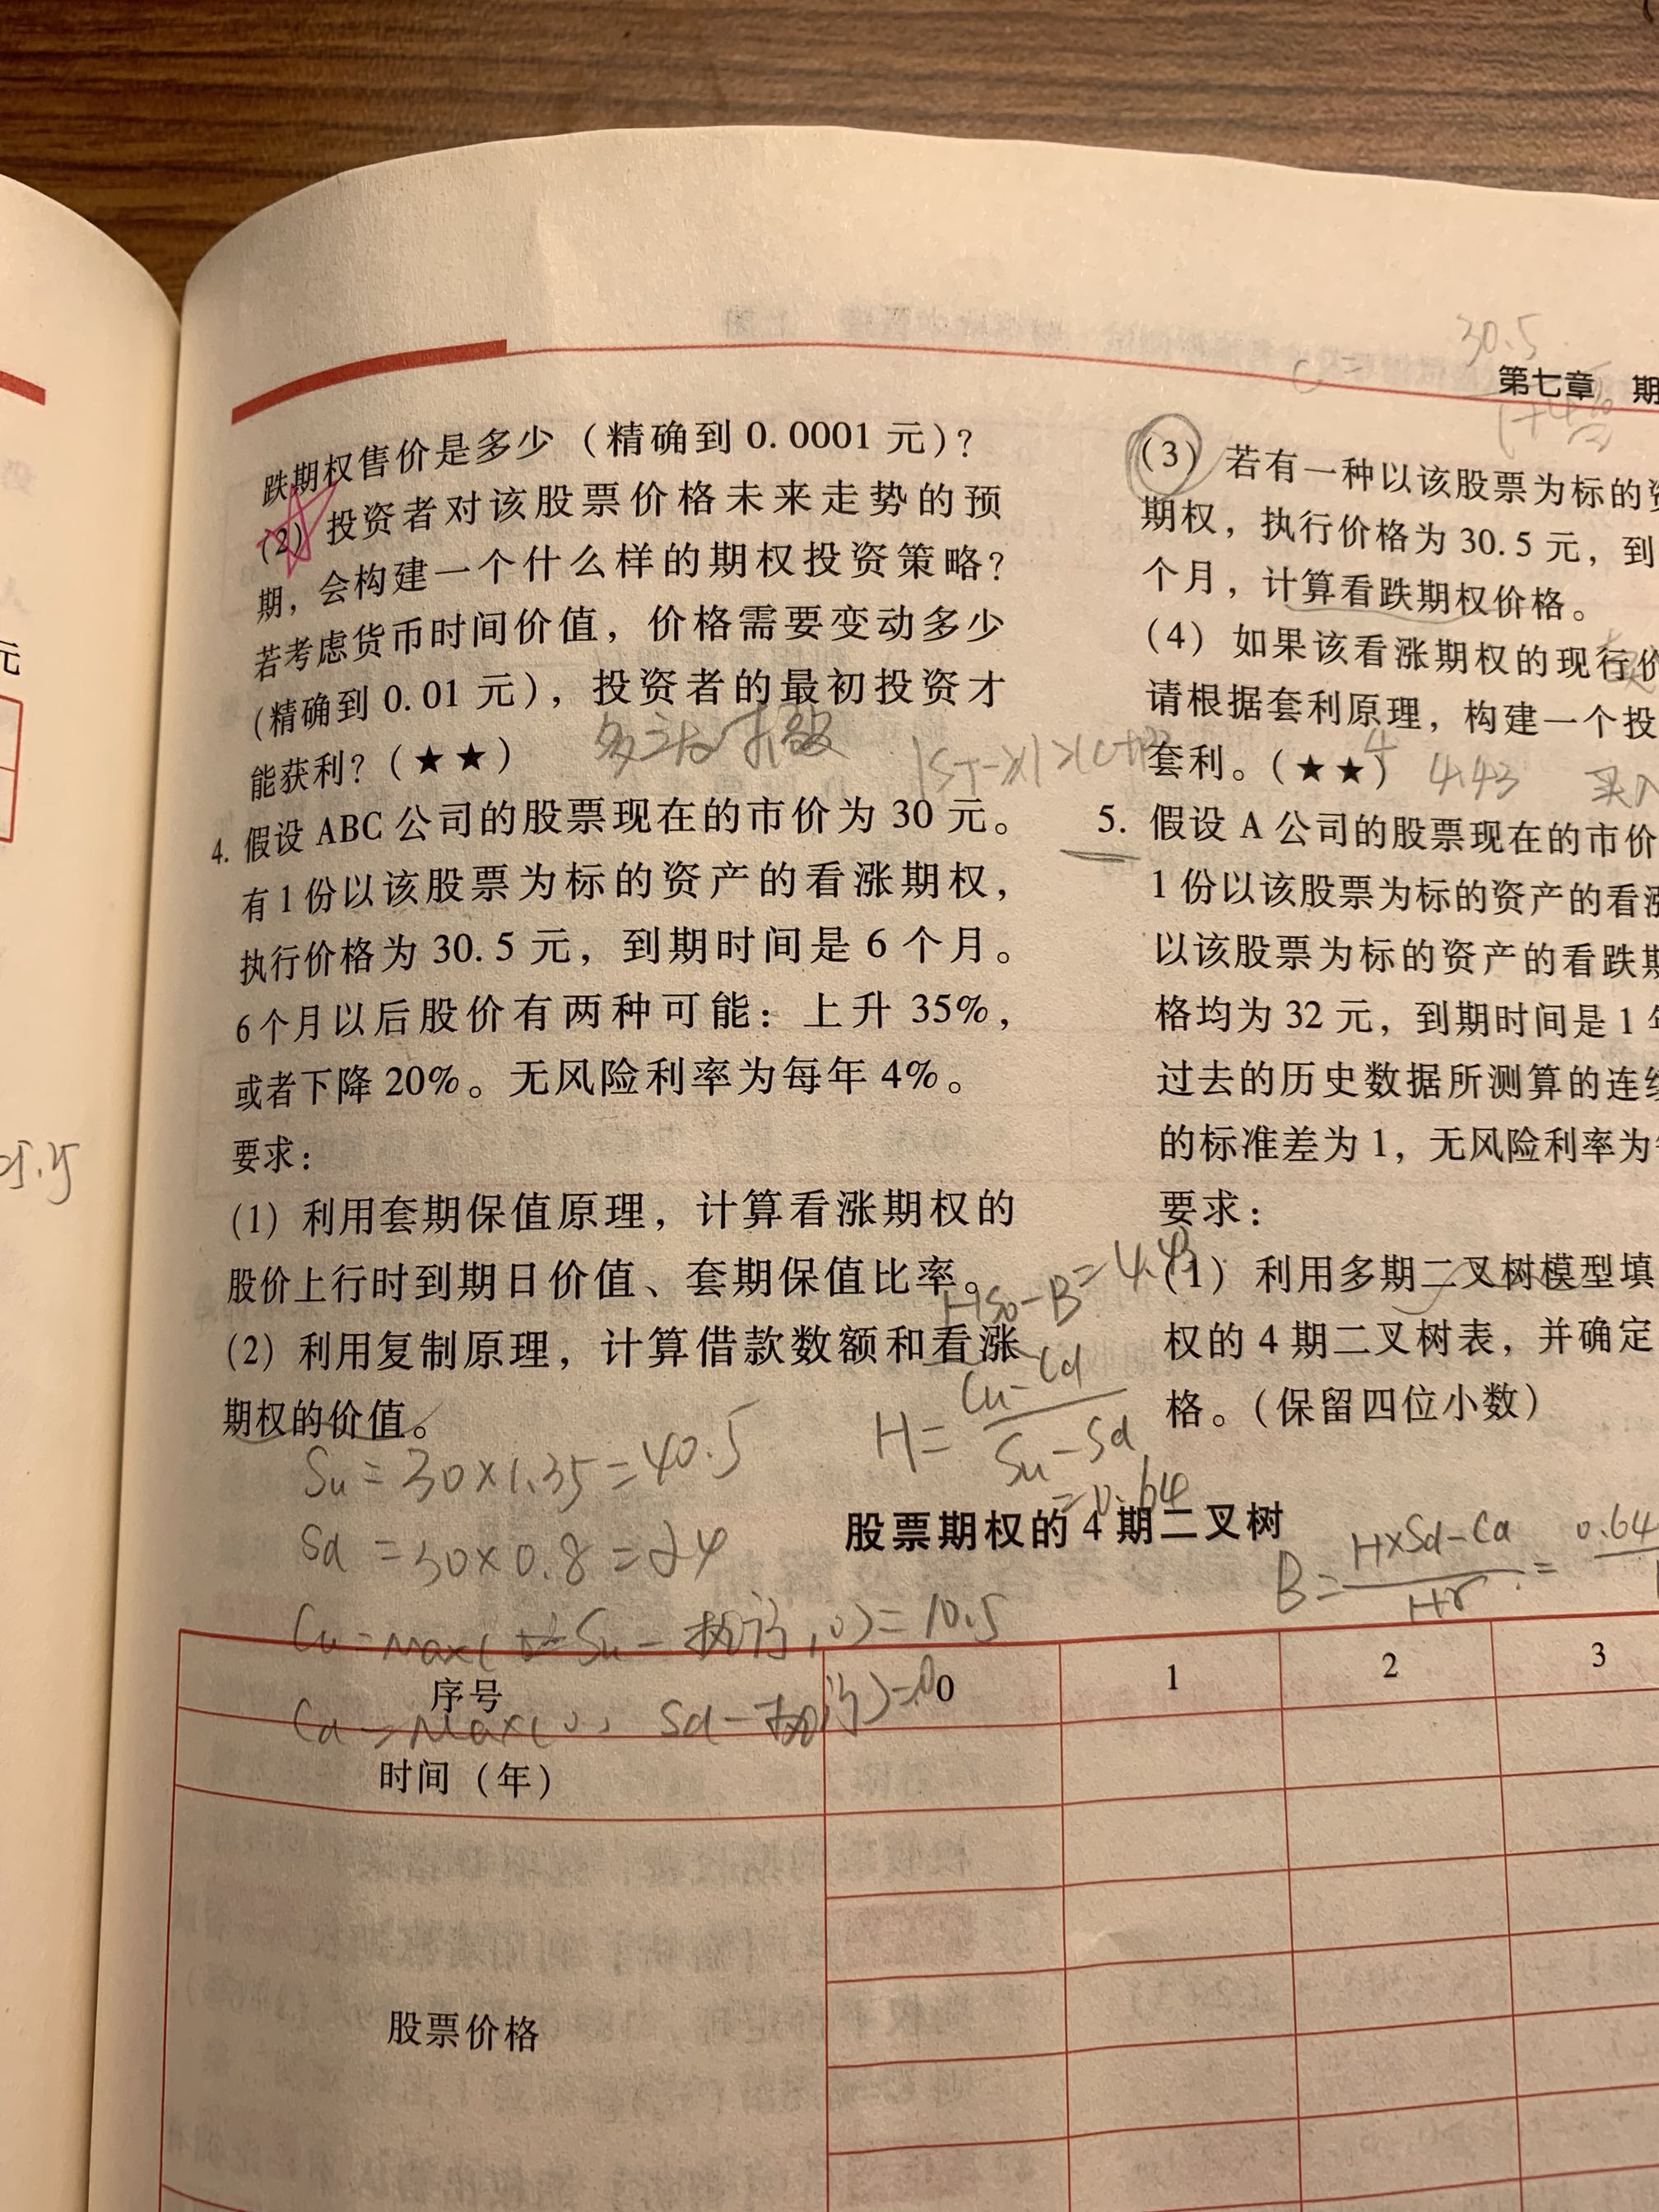 第七章 期
跌期权售价是多少（精确到0.0001元）？
(2) 投资者对该股票价格未来走势的预
期，会构建一个什么样的期权投资策略？
若考虑货币时间价值，价格需要变动多少
(精确到0.01元），投资者的最初投资才
能获利？（★★）
多头对敲
4. 假设ABC公司的股票现在的市价为30元。
有1份以该股票为标的资产的看涨期权，
执行价格为30.5元，到期时间是6个月。
6个月以后股价有两种可能：上升35%，
或者下降20%。无风险利率为每年4%。
要求：
(1) 利用套期保值原理，计算看涨期权的
股价上行时到期日价值、套期保值比率。
(2) 利用复制原理，计算借款数额和看涨
期权的价值。
Su = 30×1.35 = 40.5
Sd = 30×0.8 = 24
H = Cu-Cd / Su-Sd
= 0.64
(3) 若有一种以该股票为标的资
期权，执行价格为30.5元，到
个月，计算看跌期权价格。
(4) 如果该看涨期权的现行价
请根据套利原理，构建一个投
套利。（★★）
4.43
买入
5. 假设A公司的股票现在的市价
1份以该股票为标的资产的看涨
以该股票为标的资产的看跌期
格均为32元，到期时间是1年
过去的历史数据所测算的连续
的标准差为1，无风险利率为每
要求：
(1) 利用多期二叉树模型填
权的4期二叉树表，并确定
格。（保留四位小数）
股票期权的4期二叉树
序号 0 1 2 3
时间（年）
股票价格
元